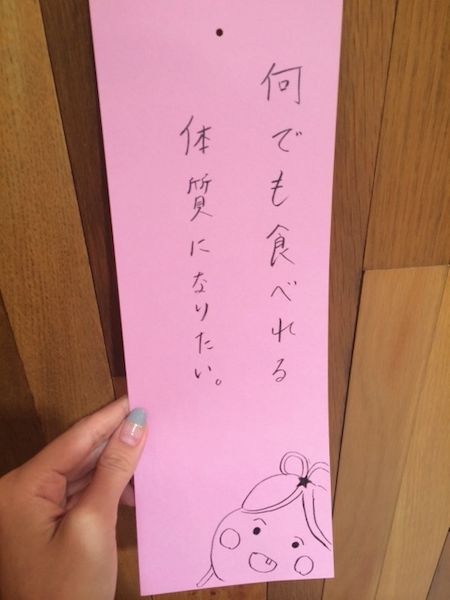 何でも食べれる
体質になりたい。